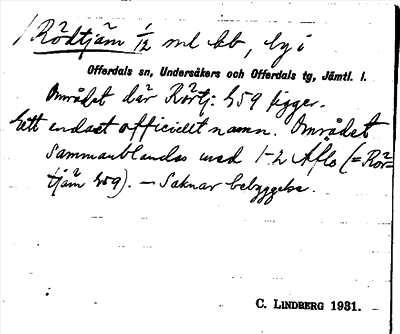 Rödtjärn 1/12 ml bb, by i
Offerdals sn, Undersåkers och Offerdals tg, Jämtl. l.
Området där Rörtj: 459 ligger.
Ett endast officiellt namn. Området
sammanblandas med 1-2 Aflo (= Rör=
tjärn 459). — Saknar bebyggelse.
C. LINDBERG 1931.